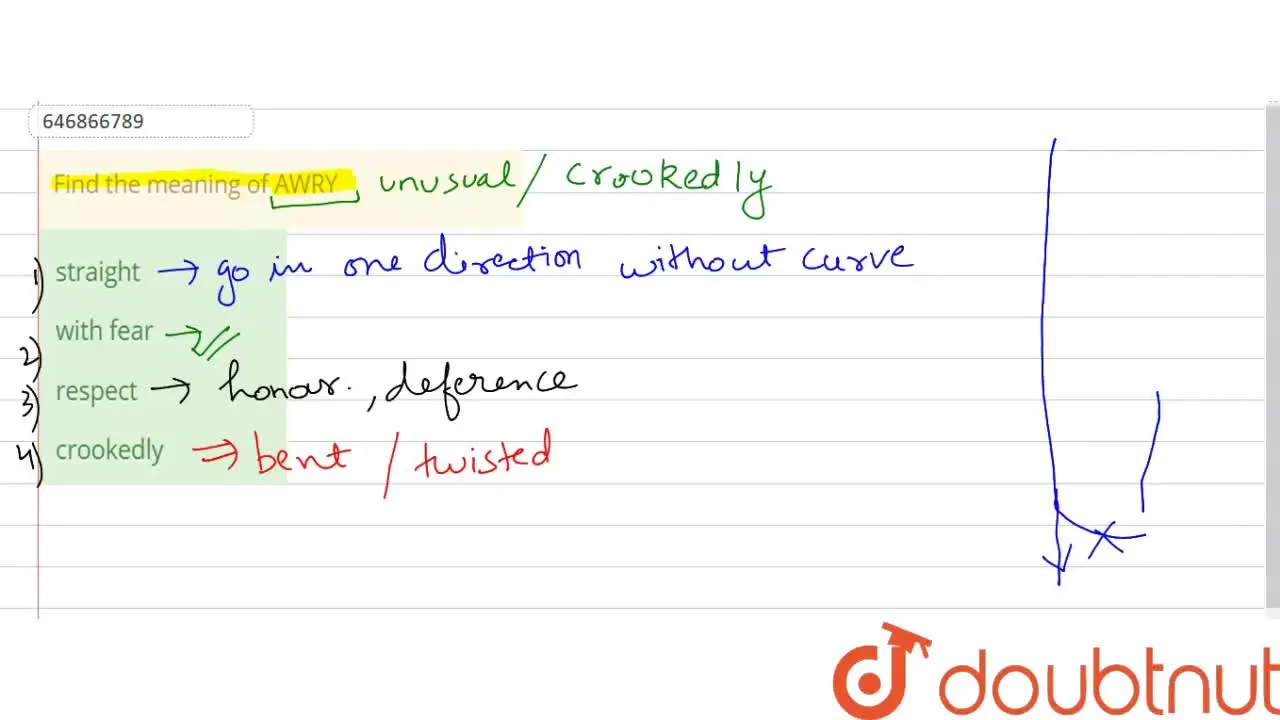 646866789
Find the meaning of AWRY unusual / crookedly
1) straight → go in one direction without curve
2) with fear →
3) respect → honour. , deference
4) crookedly ⇒ bent / twisted
doubtnut